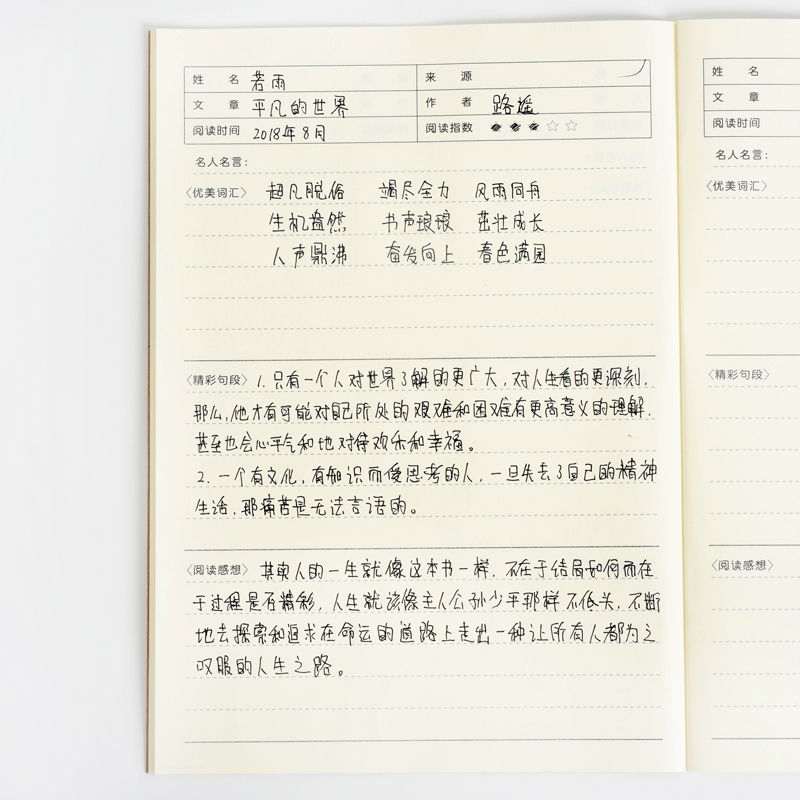 姓名 若雨 来源
文章 平凡的世界 作者 路遥
阅读时间 2018年8月 阅读指数 ★★★☆☆
名人名言：
〈优美词汇〉 超凡脱俗 竭尽全力 风雨同舟
生机盎然 书声琅琅 茁壮成长
人声鼎沸 奋发向上 春色满园
〈精彩句段〉 1.只有一个人对世界了解的更广大，对人生看的更深刻，
那么，他才有可能对自己所处的艰难和困难有更高意义的理解，
甚至也会心平气和地对待欢乐和幸福。
2.一个有文化，有知识而爱思考的人，一旦失去了自己的精神
生活，那痛苦是无法言语的。
〈阅读感想〉 其实人的一生就像这本书一样，不在于结局如何而在
于过程是否精彩，人生就该像主人公孙少平那样不低头，不断
地去探索和追求在命运的道路上走出一种让所有人都为之
叹服的人生之路。
姓名
文章
阅读时间
名人名言：
〈优美词汇〉
〈精彩句段〉
〈阅读感想〉